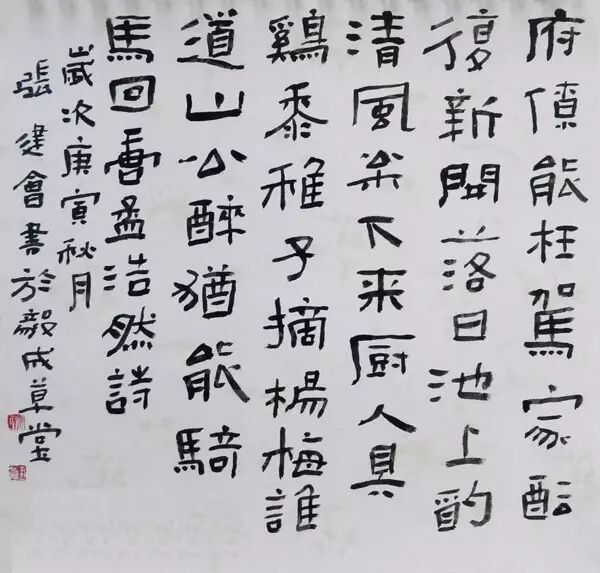 府僚能枉駕家醖
復新開落日池上酌
清風枀下来厨人具
鷄黍稚子摘楊梅誰
道山公醉猶能騎
馬回孟浩然詩
歲次庚寅秋月
張建會書於毅成草堂